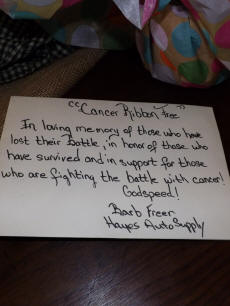 "Cancer Ribbon Tree"
In loving memory of those who have
lost their Battle, in honor of those who
have survived and in support for those
who are fighting the battle with cancer!
Godspeed!
Barb Freer
Hayes Auto Supply